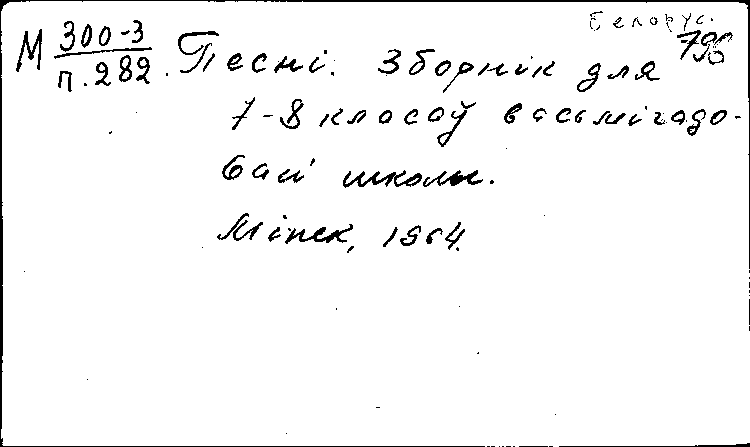 Белорус.
М 300-3
п.282. Песні. Зборнік для 796
7-8 класаў васьмігадо-
вай школы.
Мінск, 1964.